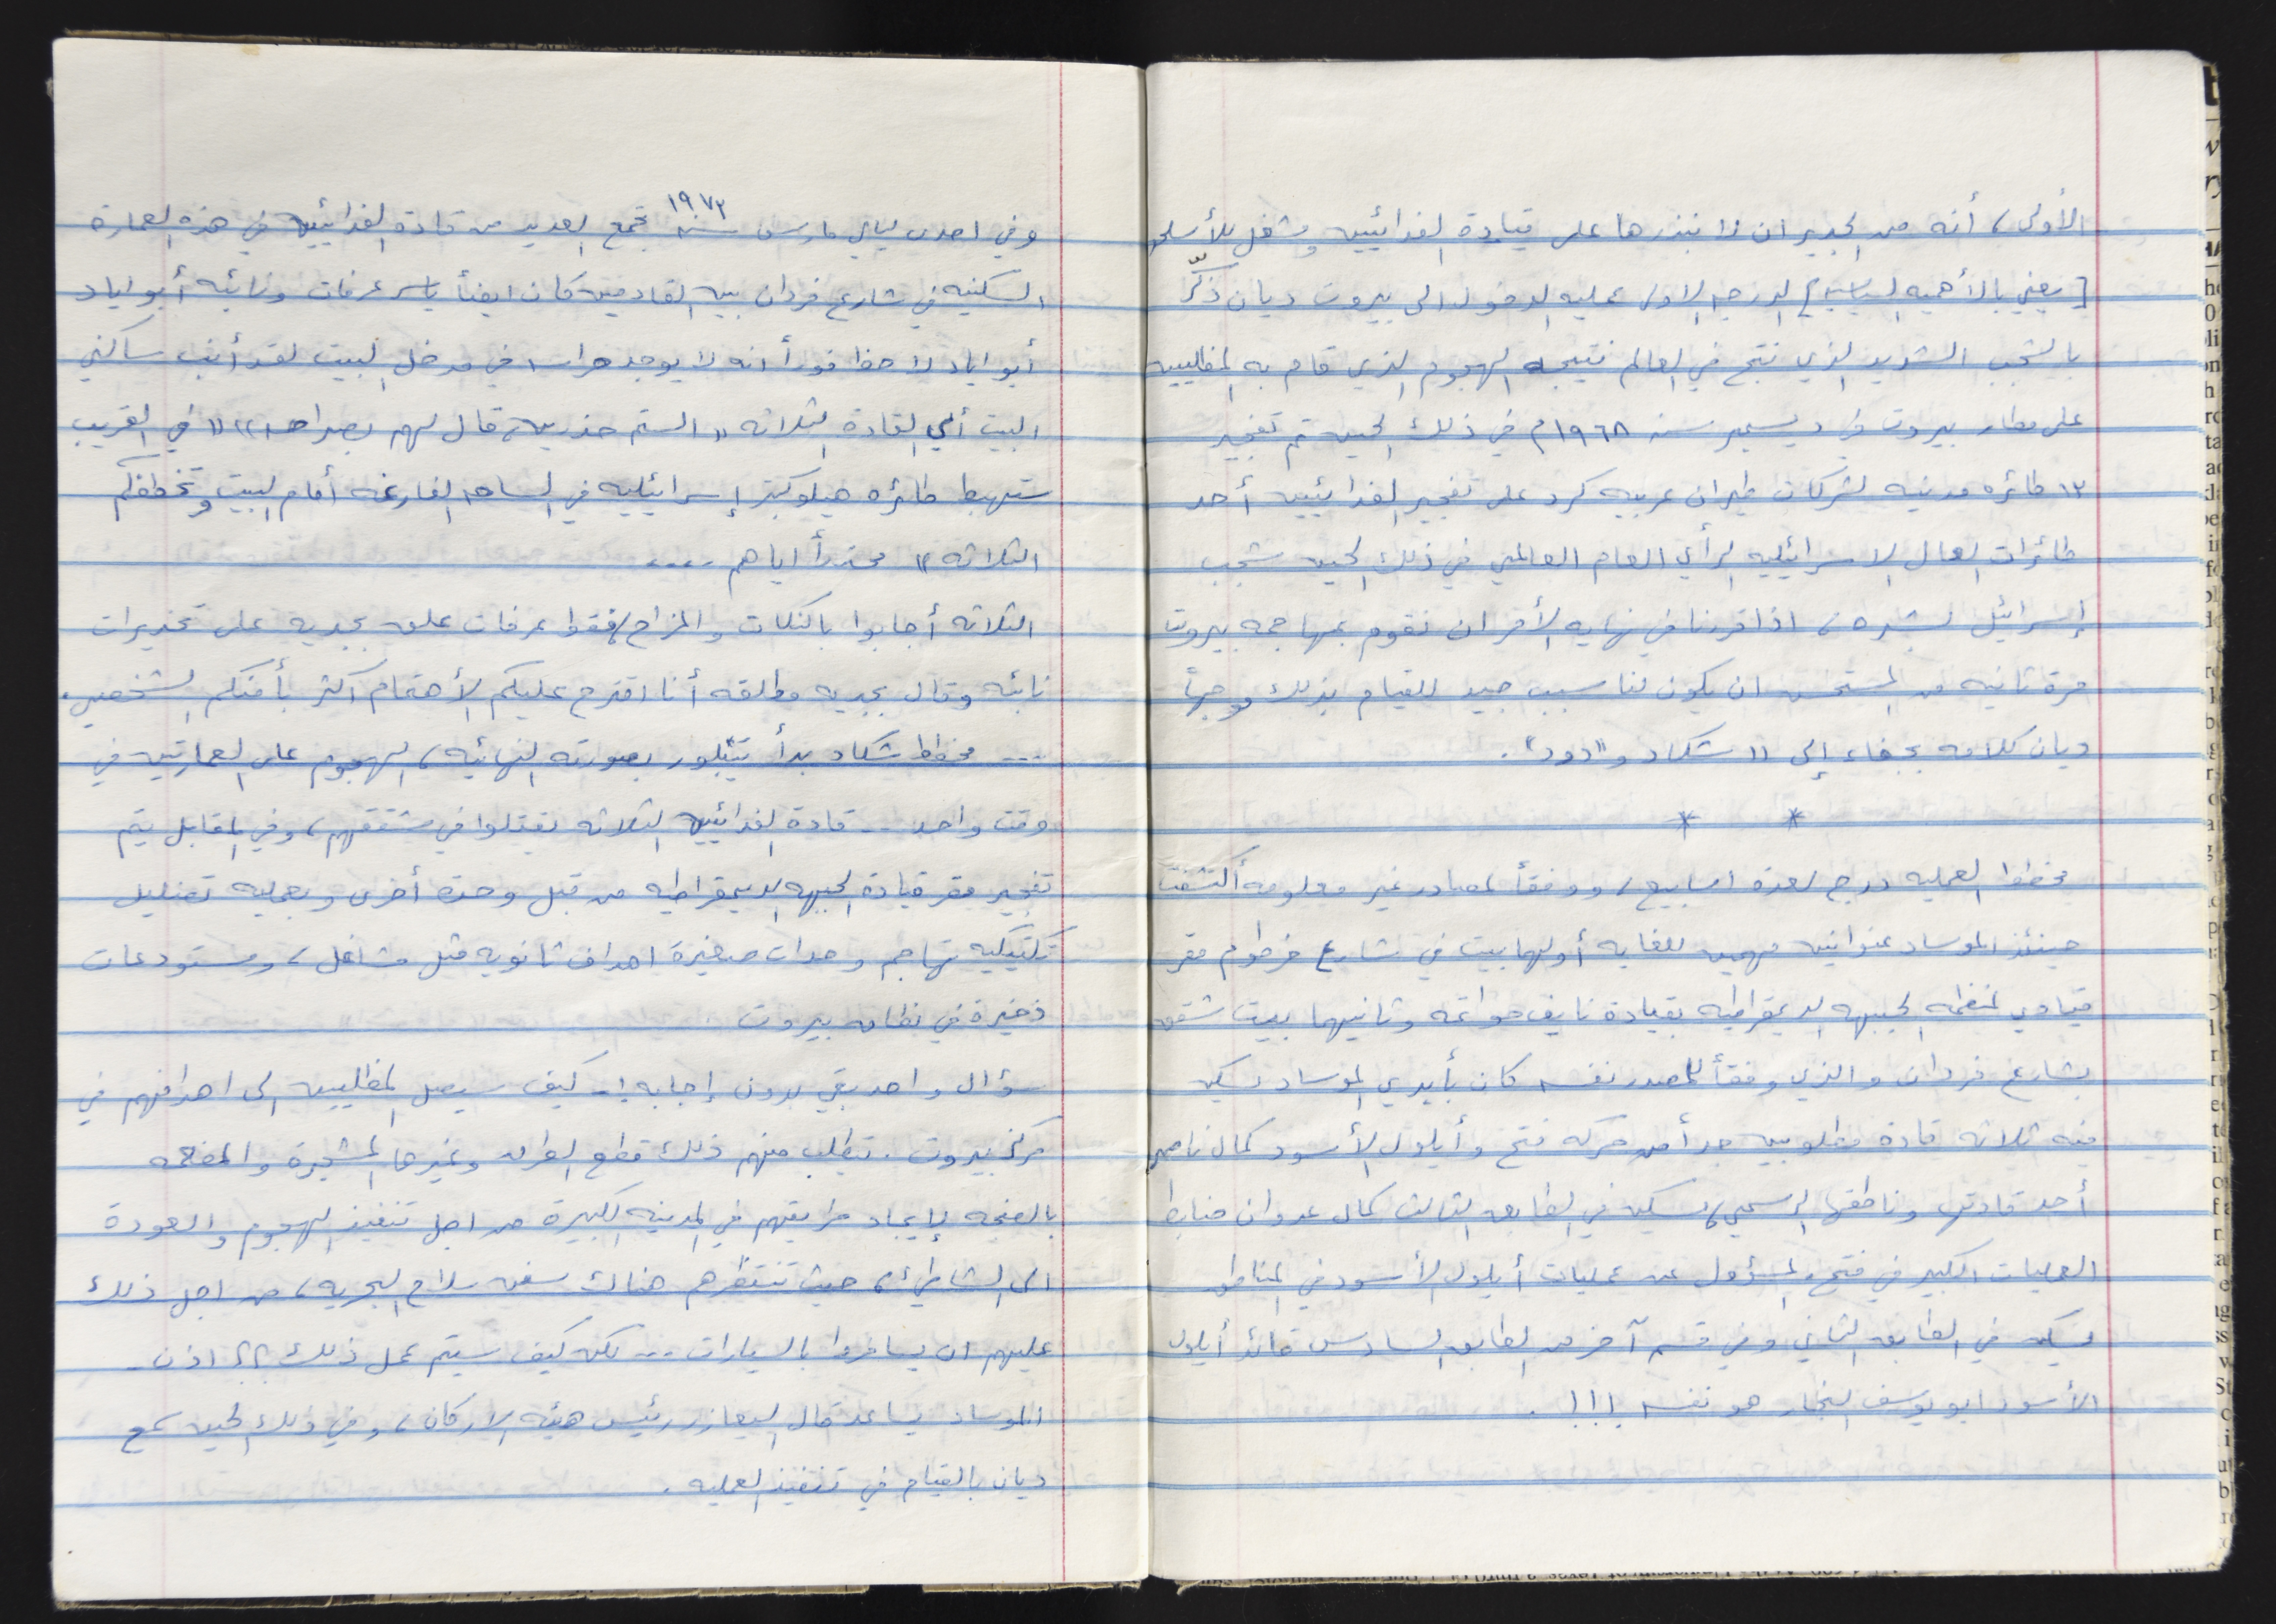 الأولى، أنه من الجدير ان لا نبذرها على قيادة الفدائيين ومشغل للأسلحه
[يعني بالأهميه السياسيه] الدرجه الاولى عمليه الدخول الى بيروت ديان ذكّر
بالشجب الشديد الذي نتج في العالم نتيجه الهجوم الذي قام به المظليين
على مطار بيروت في ديسمبر سنه ١٩٦٨م في ذلك الحين تم تفجير
١٣ طائره مدنيه لشركات طيران عربيه كرد على تفجير الفدائيين أحد
طائرات العال الاسرائيليه الرأي العام العالمي في ذلك الحين شجب
إسرائيل بشده، اذا قررنا في نهايه الأمر ان نقوم بمهاجمه بيروت
مرة ثانيه من المستحسن ان يكون لنا سبب جيد للقيام بذلك موجهاً
ديان كلامه بجفاء إلى "شكاد و"دود".
* *
مخطط العمليه درج لعدة اسابيع، ووفقاً لمصادر غير معلومه أكتشفت
حينئذ الموساد عنوانين مهمين للغايه أولهما بيت في شارع خرطوم مقر
قيادي لمنظمه الجبهه الديمقراطيه بقيادة نايف حواتمه وثانيهما بيت شقق
بشارع فردان والذي وفقاً للمصدر نفسه كان بأيدي الموساد يسكن
فيه ثلاثه قادة مطلوبين جداً من حركه فتح وأيلول الأسود كمال ناصر
أحد قادتها وناطقها الرسمي، يسكن في الطابق الثالث كمال عدوان ضابط
العمليات الكبير في فتح والمسؤول عن عمليات أيلول الأسود في المناطق
يسكن في الطابق الثاني وفي قسم آخر من الطابق السادس قائد أيلول
الأسود ابو يوسف النجار هو نفسه !!!.
١٩٧٣
وفي احدى ليالي مارس سنه تجمع العديد من قادة الفدائيين في هذه العمارة
السكنيه في شارع فردان بين القادمين كان ايضاً ياسر عرفات ونائبه أبو اياد
أبو اياد لاحظ فوراً انه لا يوجد حراسه في مدخل البيت لقد أنب ساكني
البيت القادة الثلاثه "الستم حذرين، قال لهم بصراحه" "في القريب
ستهبط طائره هيلوكبتر إسرائيليه في الساحه الفارغه أمام البيت وتخطفكم
الثلاثه" محذراً اياهم ....
الثلاثه أجابوا بالنكات والمزاح، فقط عرفات علق بجديه على تحذيرات
نائبه وقال بجديه مطلقه أنا اقترح عليكم الأهتمام اكثر بأمنكم الشخصي.
... مخطط شكاد بدأ يتبلور بصورته النهائيه، الهجوم على العمارتين في
وقت واحد .. قادة الفدائيين الثلاثه يقتلوا في شققهم، وفي المقابل يتم
تفجير مقر قيادة الجبهه الديمقراطيه من قبل وحدة أخرى وبعمليه تضليل
تكتيكيه تهاجم وحدات صغيرة اهداف ثانويه مثل مشاغل، ومستودعات
ذخيرة في نطاق بيروت.
سؤال واحد بقي بدون إجابه :- كيف سيصل المظليين الى اهدافهم في
مركز بيروت. يتطلب منهم ذلك قطع الطرق وغيرها المشجرة والمفعمه
بالضجه لإيجاد طريقهم في المدينه الكبيرة من اجل تنفيذ الهجوم والعودة
الى الشاطئ، حيث تنتظرهم هناك سفن سلاح البحريه، من اجل ذلك
عليهم ان يسافروا بالسيارات ... لكن كيف سيتم عمل ذلك ؟؟ اذن -
الموساد يساعد قال اليعازر رئيس هيئه الاركان، وفي ذلك الحين سمح
ديان بالقيام في تنفيذ العمليه.